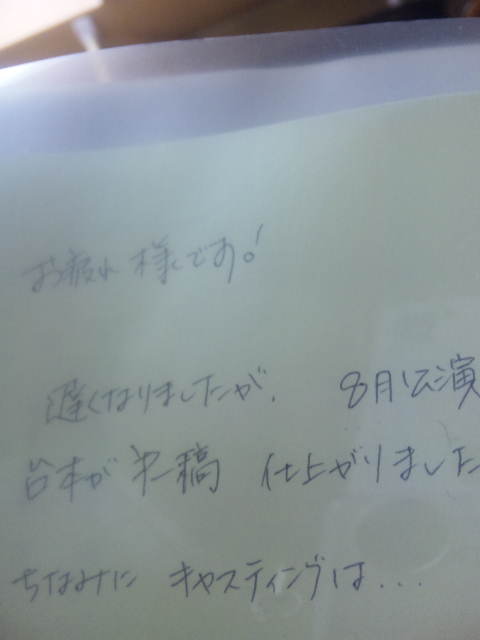 お疲れ様です。!
遅くなりましたが、 8月公演
台本が 第一稿 仕上がりました
ちなみに キャスティングは...